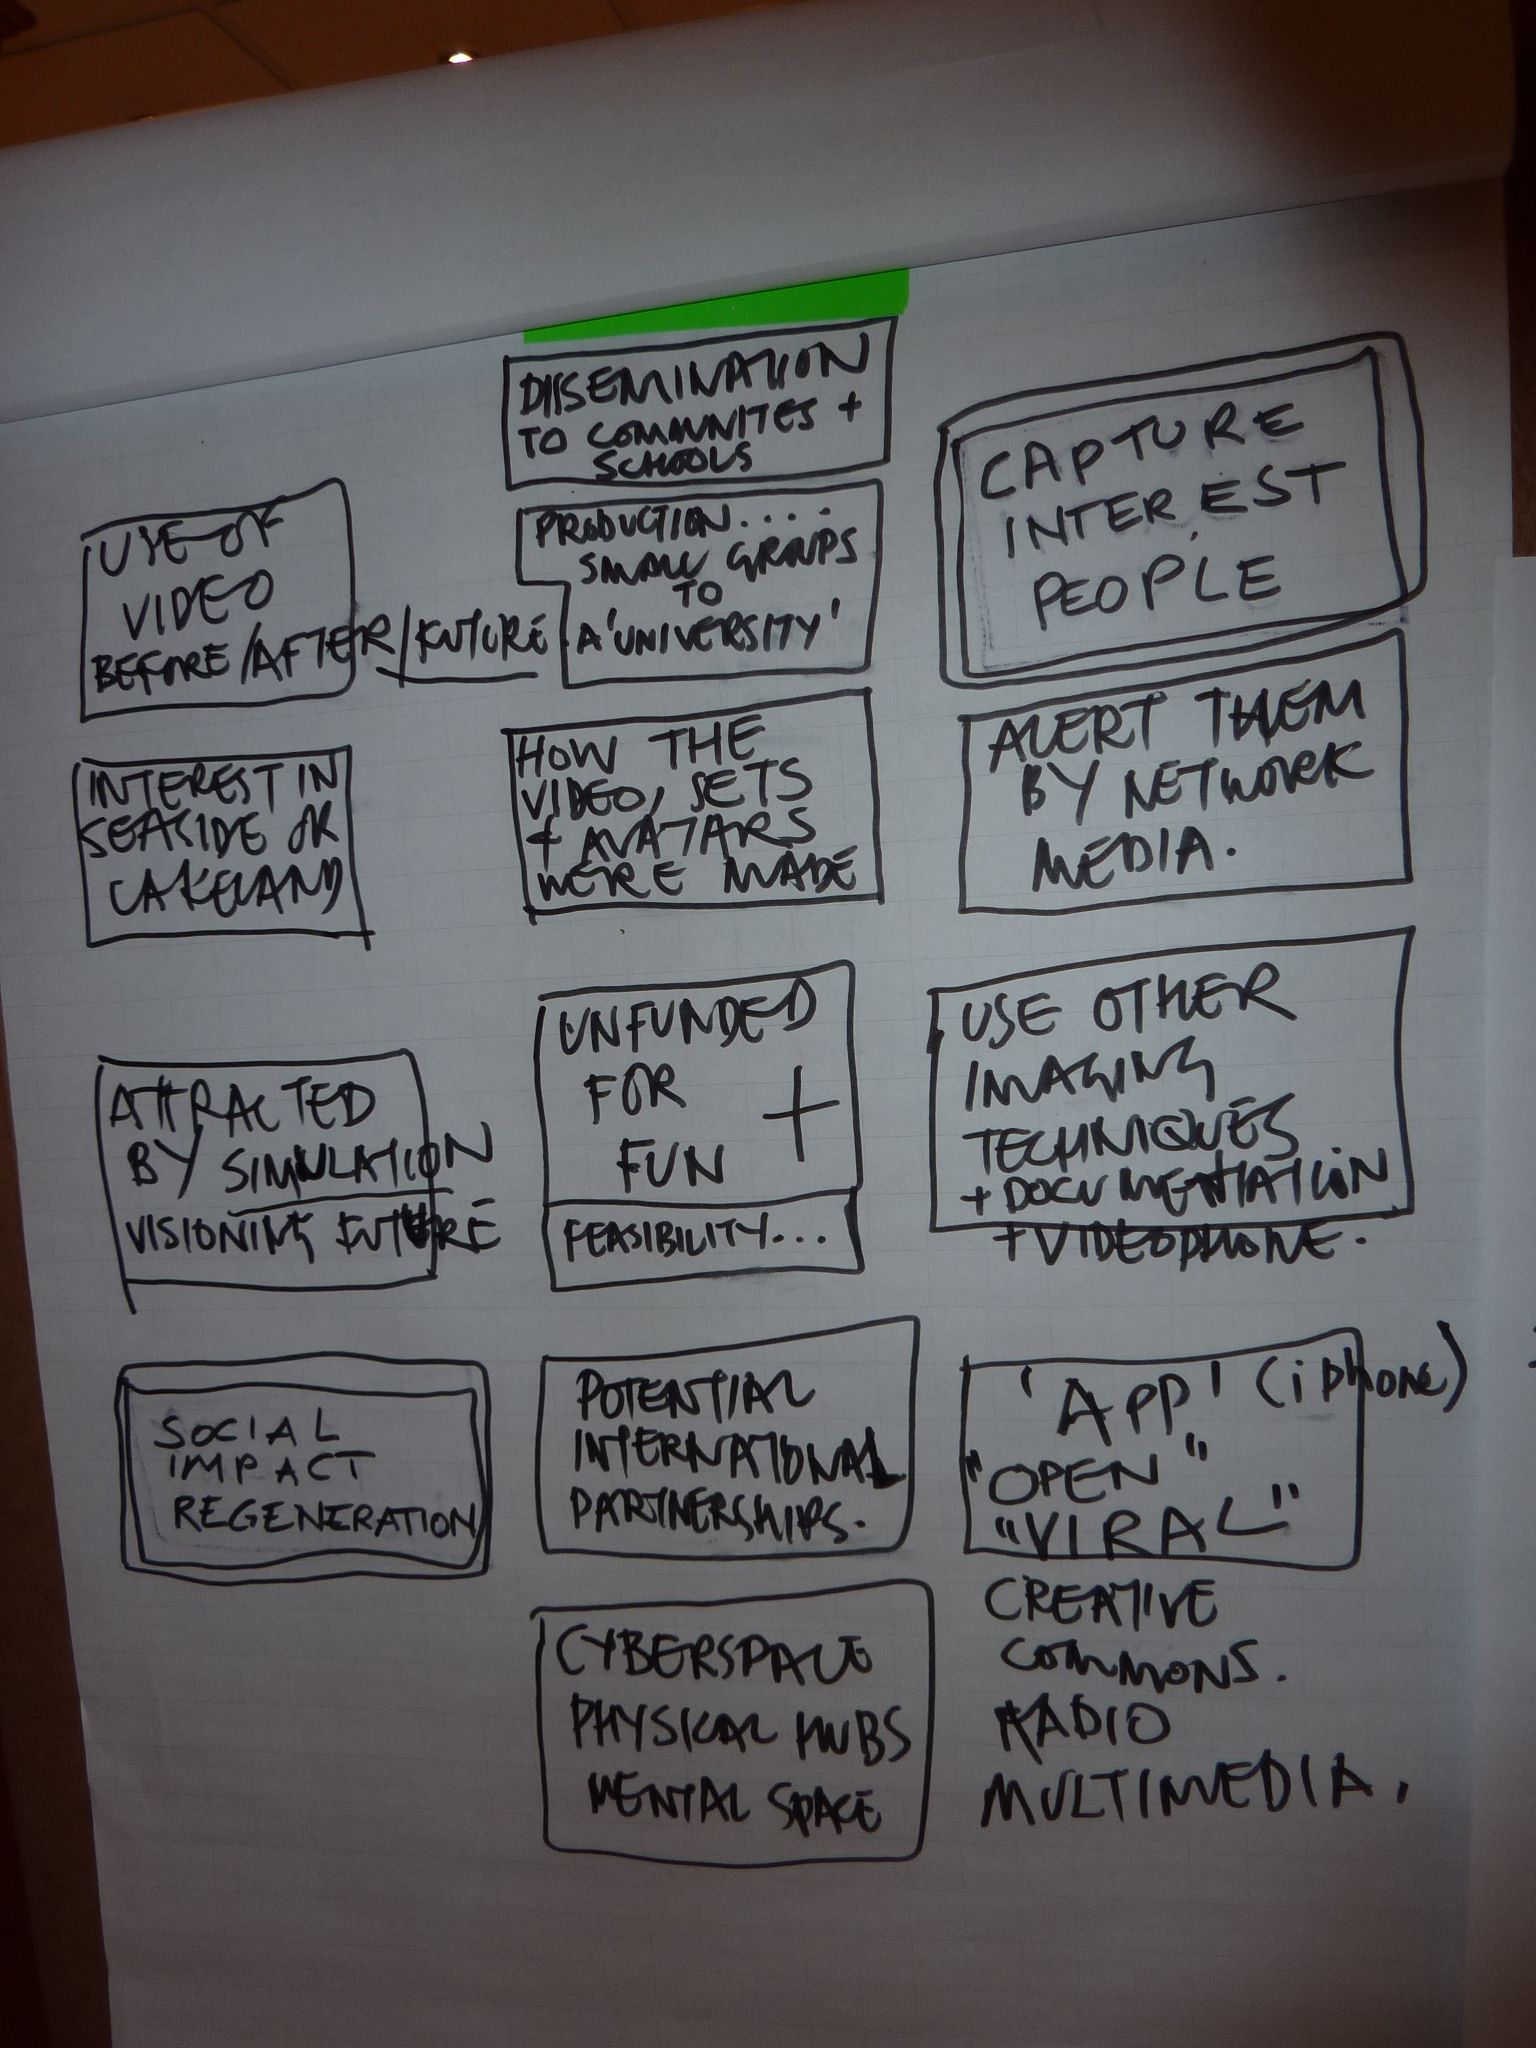 USE OF
VIDEO
BEFORE/AFTER/FUTURE
INTEREST IN
SEASIDE OR
LAKELAND
ATTRACTED
BY SIMULATION
VISIONING FUTURE
SOCIAL
IMPACT
REGENERATION
DISSEMINATION
TO COMMUNITES +
SCHOOLS
PRODUCTION.....
SMALL GROUPS
TO
A 'UNIVERSITY'
HOW THE
VIDEO, SETS
+ AVATARS
WERE MADE
UNFUNDED
FOR +
FUN
FEASIBILITY...
POTENTIAL
INTERNATIONAL
PARTNERSHIPS.
CYBERSPACE
PHYSICAL HUBS
MENTAL SPACE
CAPTURE
INTEREST
PEOPLE
ALERT THEM
BY NETWORK
MEDIA.
USE OTHER
IMAGING
TECHNIQUES
+ DOCUMENTATION
+ VIDEOPHONE.
'APP' (iphone)
"OPEN"
"VIRAL"
CREATIVE
COMMONS.
RADIO
MULTIMEDIA.